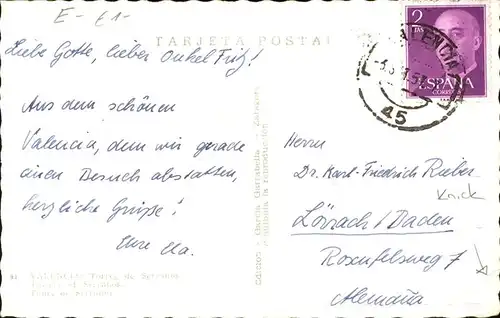 E - 61-
TARJETA POSTAL
Liebe Gotte, lieber Onkel Fritz!
Aus dem schönen
Valencia, dem wir gerade
einen Besuch abstatten,
herzliche Grüße!
Eure
2
PTAS
ESPAÑA
CORREOS
VALENCIA
45
Herrn
Dr. Karl-Friedrich Rieber
Knick
Lörrach/Baden
Rosenfelsweg 7
Alemaña
VALENCIA Torres de Serranos
Edición - García Garrabella - Zaragoza
Prohibida la reproducción